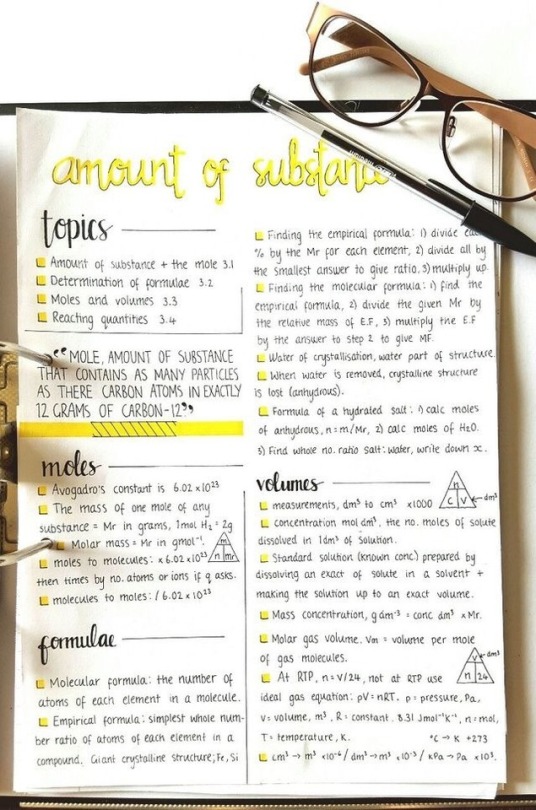 amount of substance
topics
Amount of substance + the mole 3.1
Determination of formulae 3.2
Moles and volumes 3.3
Reacting quantities 3.4
"MOLE, AMOUNT OF SUBSTANCE
THAT CONTAINS AS MANY PARTICLES
AS THERE CARBON ATOMS IN EXACTLY
12 GRAMS OF CARBON-12"
moles
Avogadro's constant is 6.02 x10²³
The mass of one mole of any
substance = Mr in grams, 1mol H₂ = 2g
Molar mass = Mr in gmol⁻¹.
m
n mr
moles to molecules: x 6.02 x10²³
then times by no. atoms or ions if q asks.
molecules to moles: / 6.02 x10²³
formulae
Molecular formula: the number of
atoms of each element in a molecule.
Empirical formula: simplest whole num-
ber ratio of atoms of each element in a
compound. Giant crystalline structure; Fe, Si
Finding the empirical formula: 1) divide
% by the Mr for each element, 2) divide all by
the smallest answer to give ratio, 3) multiply up.
Finding the molecular formula: 1) find the
empirical formula, 2) divide the given Mr by
the relative mass of E.F, 3) multiply the E.F
by the answer to step 2 to give MF.
Water of crystallisation, water part of structure.
When water is removed, crystalline structure
is lost (anhydrous).
Formula of a hydrated salt: 1) calc moles
of anhydrous, n = m/Mr, 2) calc moles of H₂O.
3) Find whole no. ratio salt: water, write down x.
volumes
n
c v
dm³
measurements, dm³ to cm³ x1000
concentration mol dm³, the no. moles of solute
dissolved in 1dm³ of solution.
Standard solution (known conc.) prepared by
dissolving an exact of solute in a solvent +
making the solution up to an exact volume.
Mass concentration, g dm⁻³ = conc dm³ x Mr.
Molar gas volume. Vm = volume per mole
of gas molecules.
v
n 24
dm³
At RTP, n = V/24, not at RTP use
ideal gas equation: pV = nRT. p = pressure, Pa,
V = volume, m³, R = constant. 8.31 Jmol⁻¹K⁻¹, n = mol,
T = temperature, K. °C → K +273
cm³ → m³ x10⁻⁶ / dm³ → m³ x10⁻³ / kPa → Pa x10³.